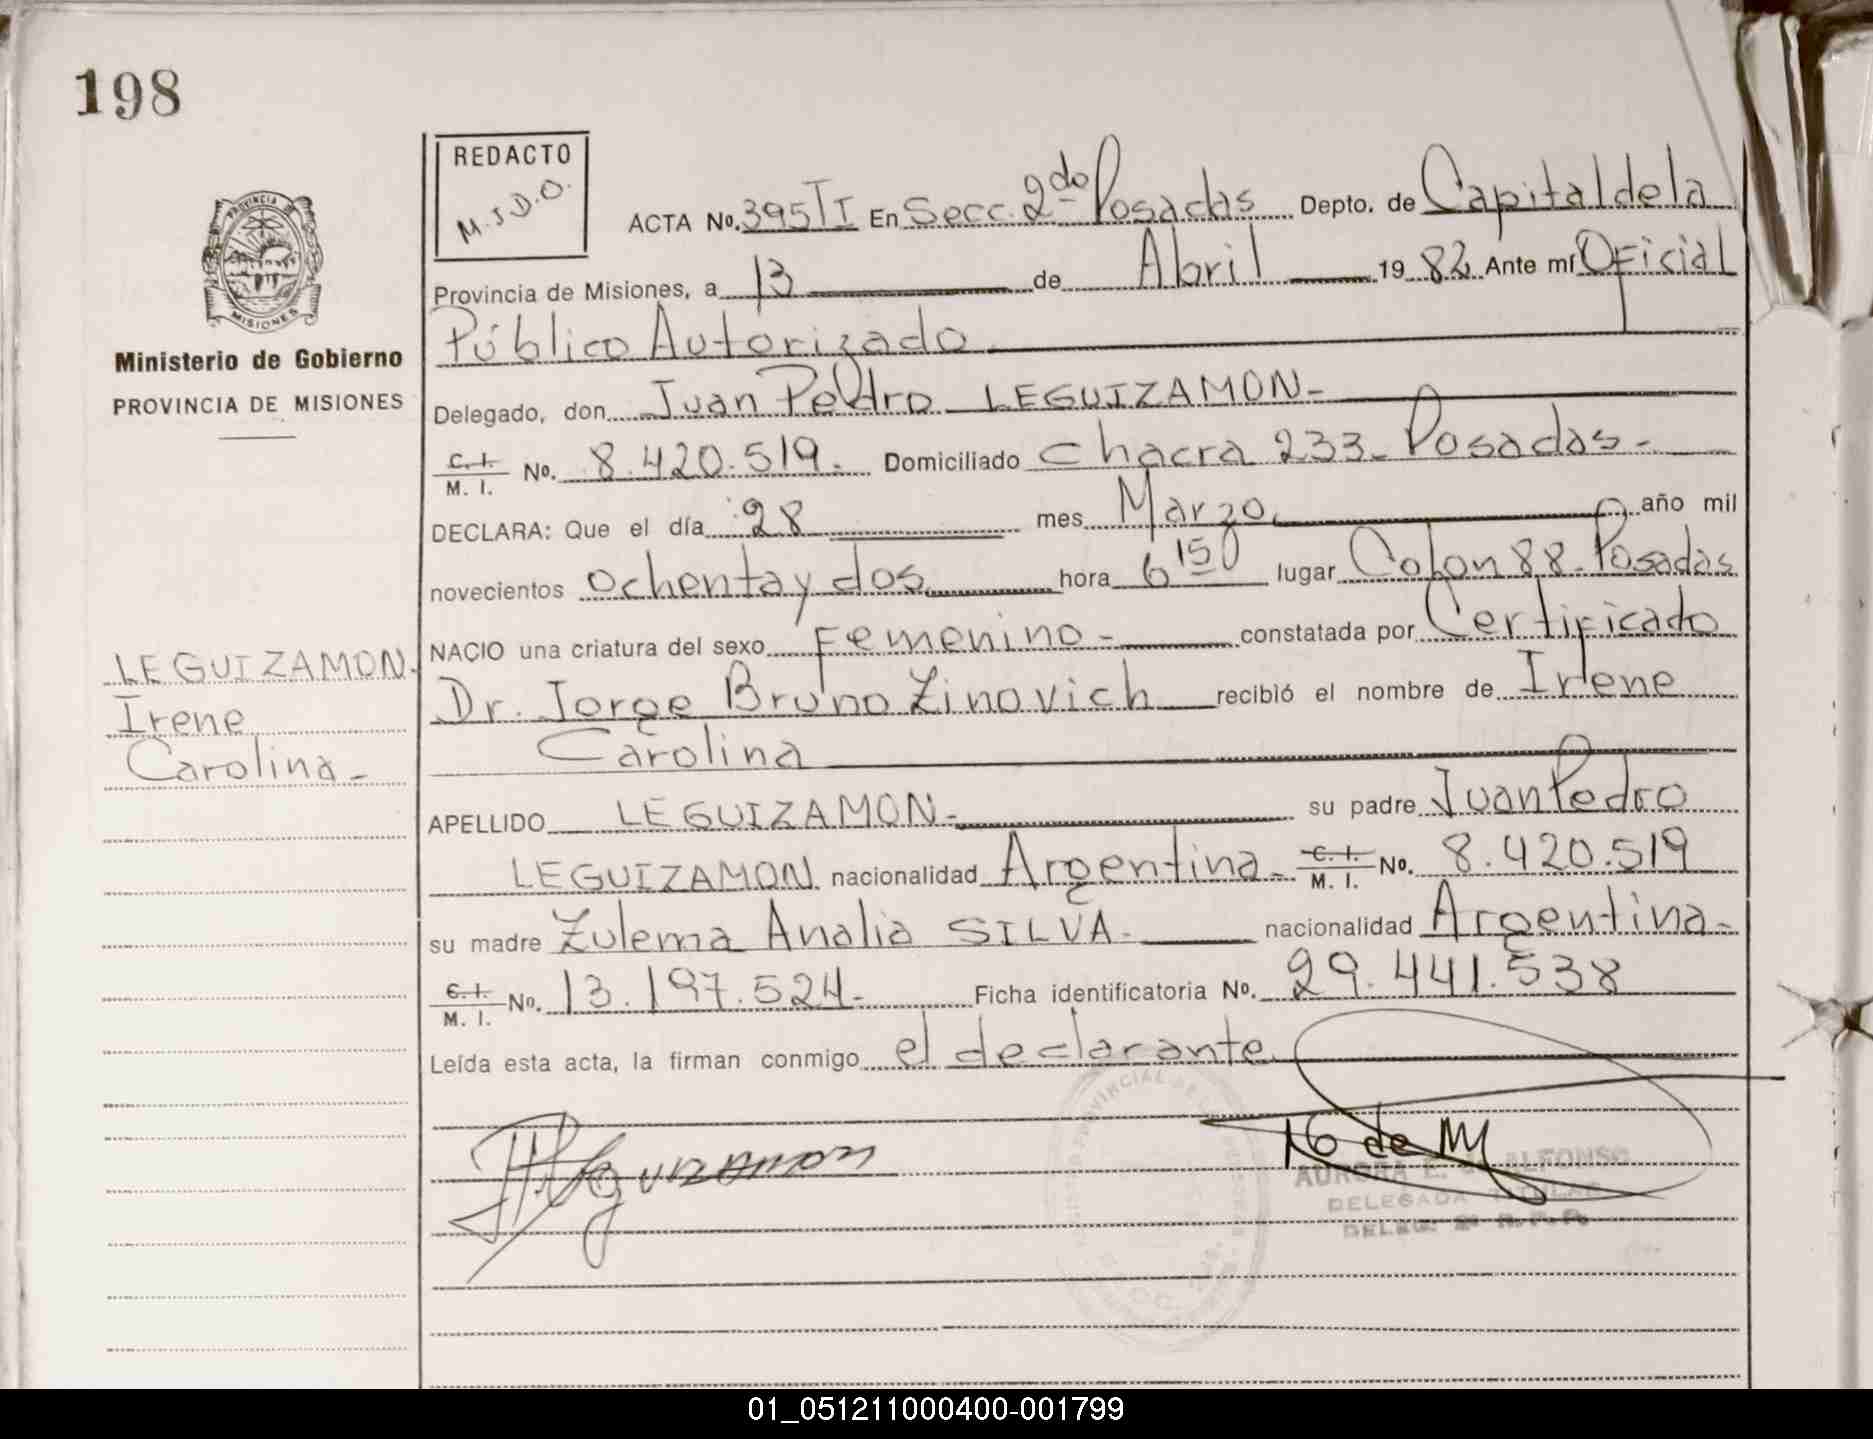 198
REDACTO
M.J.D.O.
PROVINCIA DE
MISIONES
Ministerio de Gobierno
PROVINCIA DE MISIONES
ACTA No. 395 TI En Secc. 2do Posadas Depto. de Capital de la
Provincia de Misiones, a 13 de Abril 1982 Ante mí Oficial
Público Autorizado
Delegado, don Juan Pedro LEGUIZAMON-
C. I. M. I. No. 8.420.519- Domiciliado Chacra 233- Posadas-
DECLARA: Que el día 28 mes Marzo año mil
novecientos ochenta y dos hora 6 15 lugar Colon 88- Posadas
NACIO una criatura del sexo Femenino- constatada por Certificado
Dr. Jorge Bruno Zinovich recibió el nombre de Irene
Carolina
LEGUIZAMON-
Irene
Carolina-
APELLIDO LEGUIZAMON- su padre Juan Pedro
LEGUIZAMON nacionalidad Argentina- C. I. M. I. No. 8.420.519
su madre Zulema Analia SILVA- nacionalidad Argentina-
C. I. M. I. No. 13.197.524- Ficha identificatoria No. 29.441.538
Leída esta acta, la firman conmigo el declarante
Leguizamon
AURORA E. de ALFONSO
DELEGADA TITULAR
DELEG. 2ª R.P.P.
01_051211000400-001799